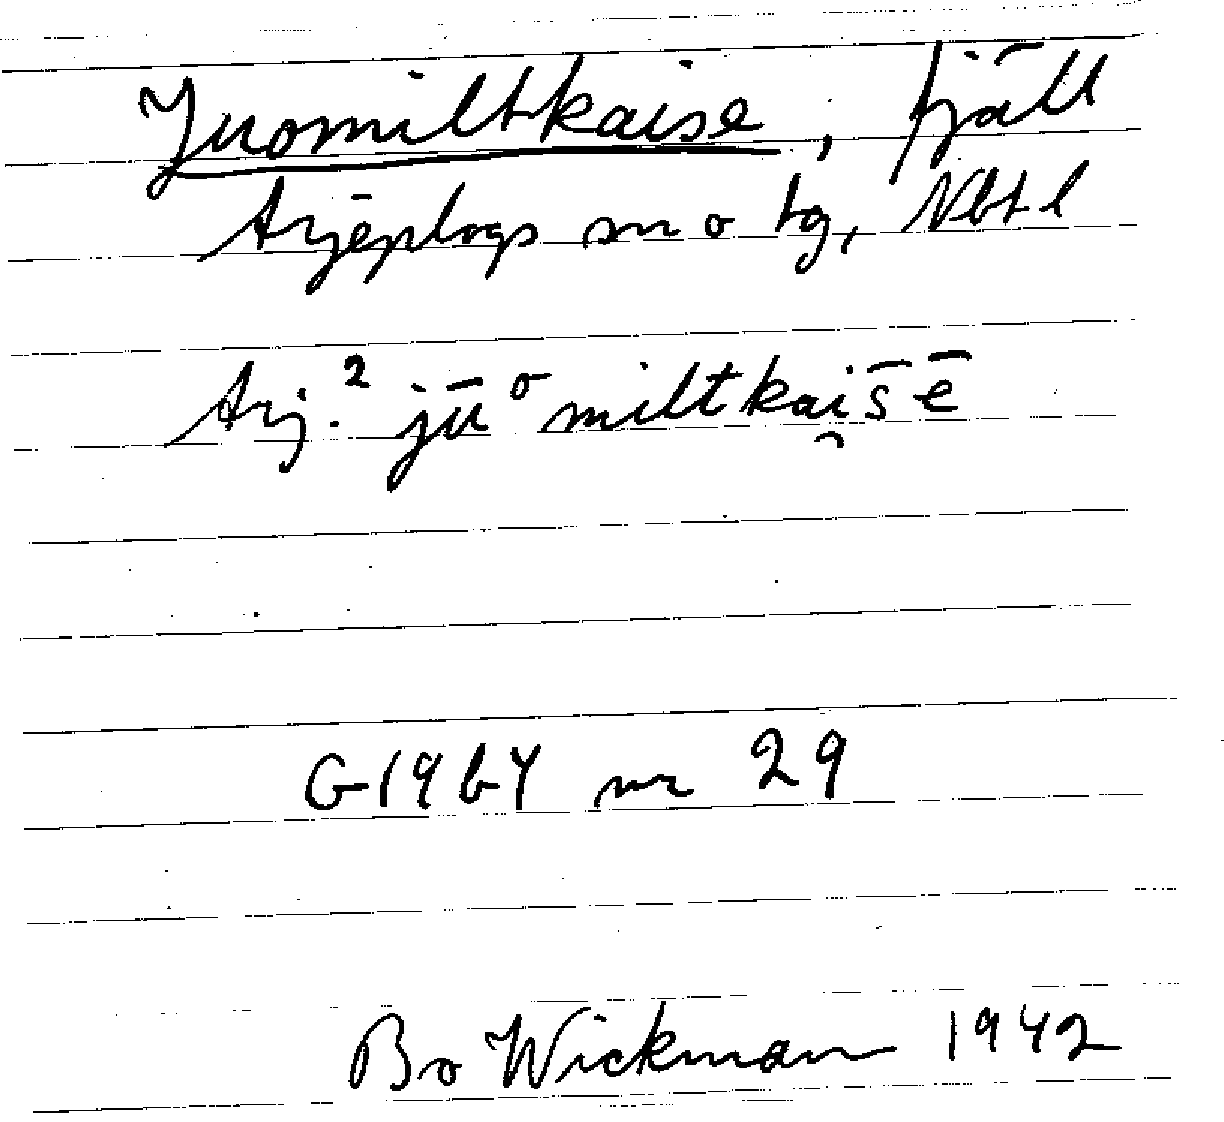 Juomiltkaise, fjäll
Arjeplogs sn o tg, Nbtl
Arj.² jūᵒmiltkai̯s̄ē
G1964 nr 29
Bo Wickman 1942